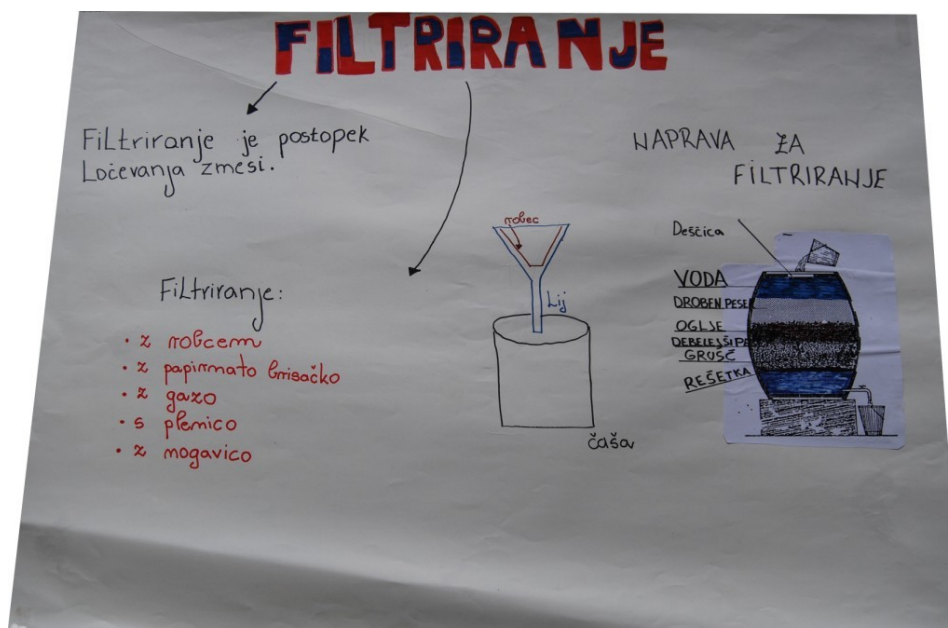 FILTRIRANJE
Filtriranje je postopek
Ločevanja zmesi.
Filtriranje:
· z robcem
· z papirnato brisačko
· z gazo
· s plenico
· z nogavico
robec
Lij
čaša
NAPRAVA ZA
FILTRIRANJE
Deščica
VODA
DROBEN PESEK
OGLJE
DEBELEJŠI PE
GRUŠČ
REŠETKA